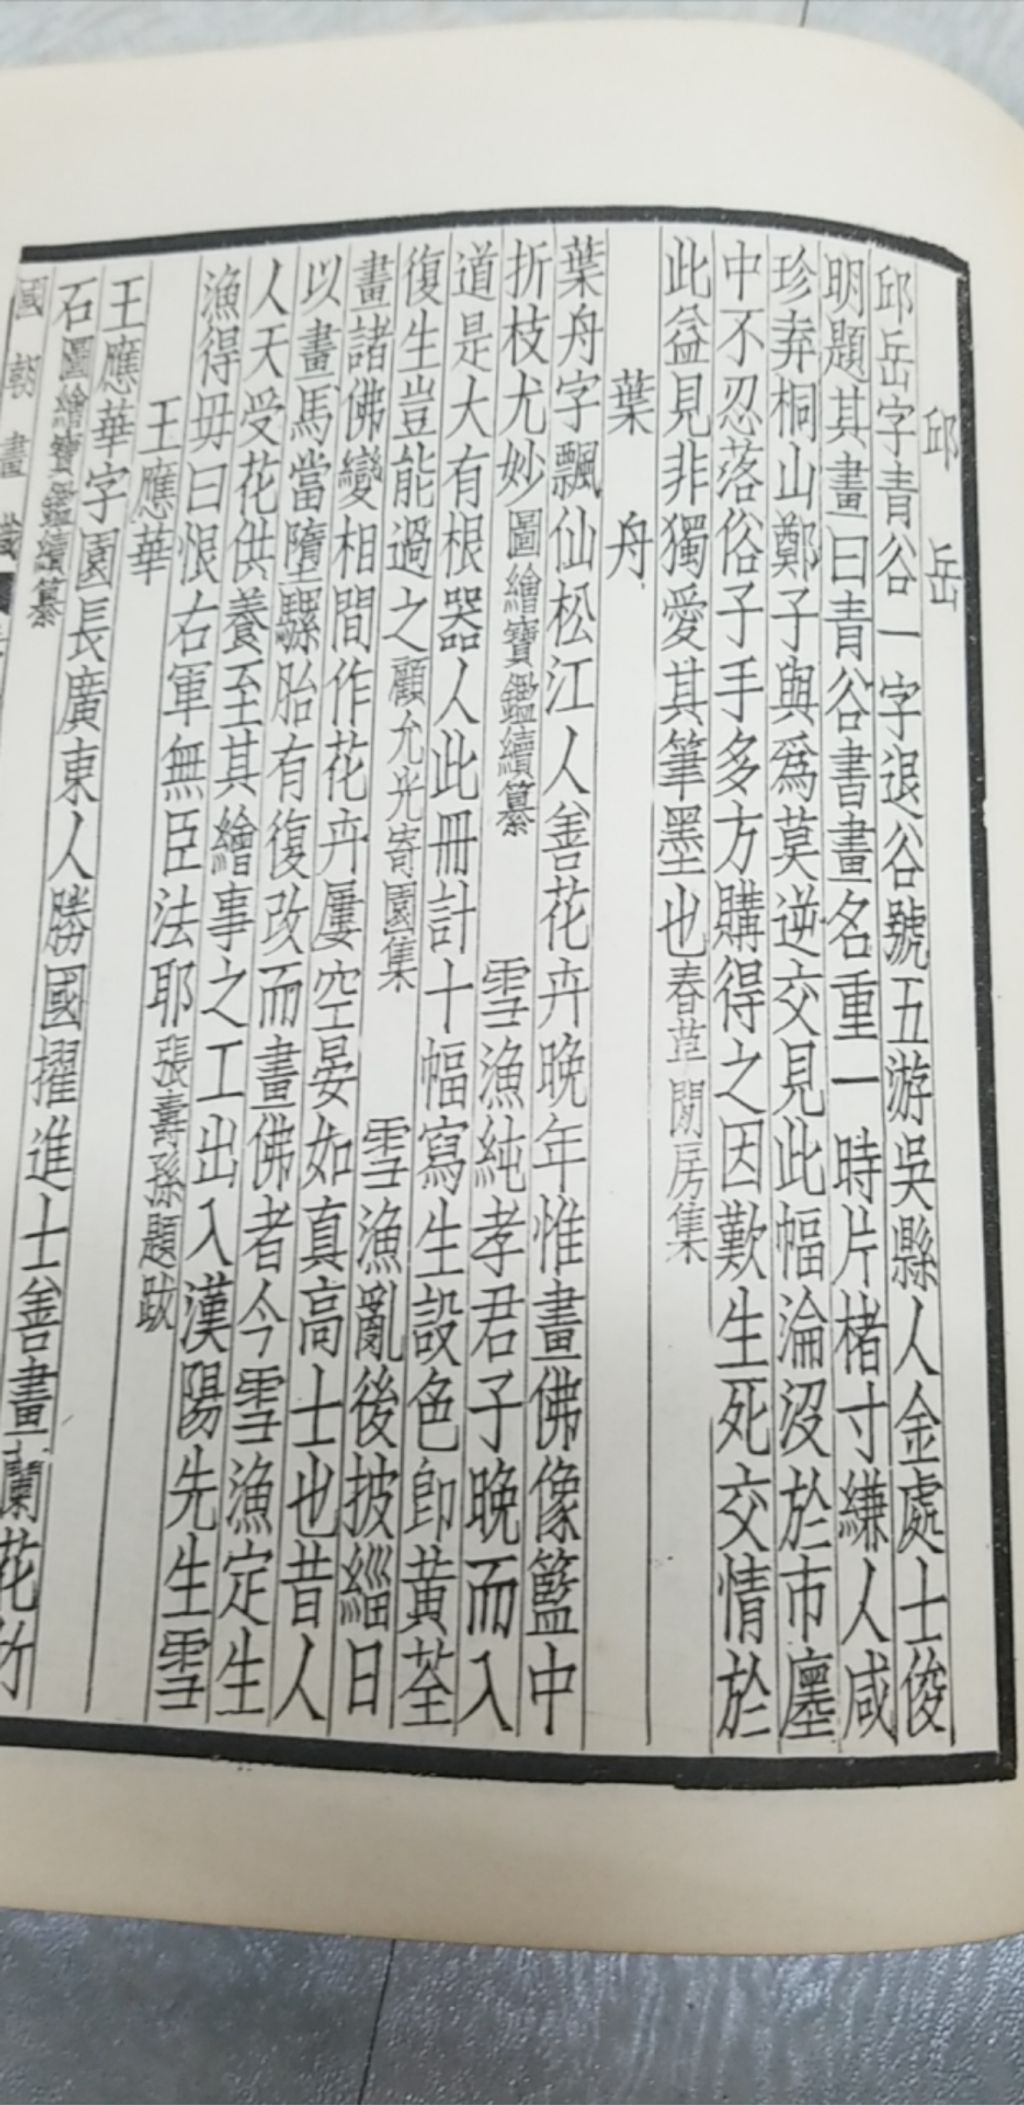 邱岳
邱岳字青谷一字退谷號五游吳縣人金處士俊
明題其畫曰青谷書畫名重一時片楮寸縑人咸
珍弆桐山鄭子與爲莫逆交見此幅淪沒於市廛
中不忍落俗子手多方購得之因歎生死交情於
此益見非獨愛其筆墨也春草閒房集
葉舟
葉舟字飄仙松江人善花卉晚年惟畫佛像籃中
折枝尤妙圖繪寶鑑續纂 雪漁純孝君子晚而入
道是大有根器人此冊計十幅寫生設色卽黃荃
復生豈能過之顧允光寄園集 雪漁亂後披緇日
畫諸佛變相間作花卉屢空晏如真高士也昔人
以畫馬當墮騾胎有復改而畫佛者今雪漁定生
人天受花供養至其繪事之工出入漢陽先生雪
漁得毋曰恨右軍無臣法耶張壽孫題跋
王應華
王應華字園長廣東人勝國擢進士善畫蘭花竹
石圖繪寶鑑續纂
國朝畫